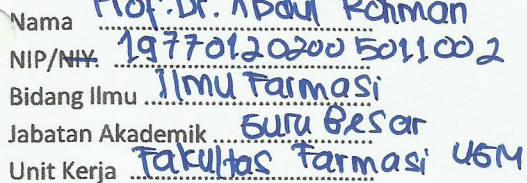 Nama Prof. Dr. Abdul Rohman
NIP/NIY. 19770120200 5011002
Bidang Ilmu Ilmu Farmasi
Jabatan Akademik Guru Besar
Unit Kerja Fakultas Farmasi UGM